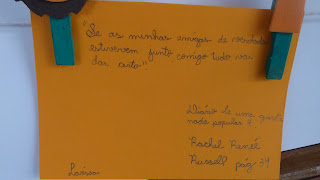 "Se as minhas amigas de verdade
estiverem junto comigo tudo vai
dar certo"
Diário de uma garota
nada popular 9
Rachel Reneé
Russell pág 34
Larissa